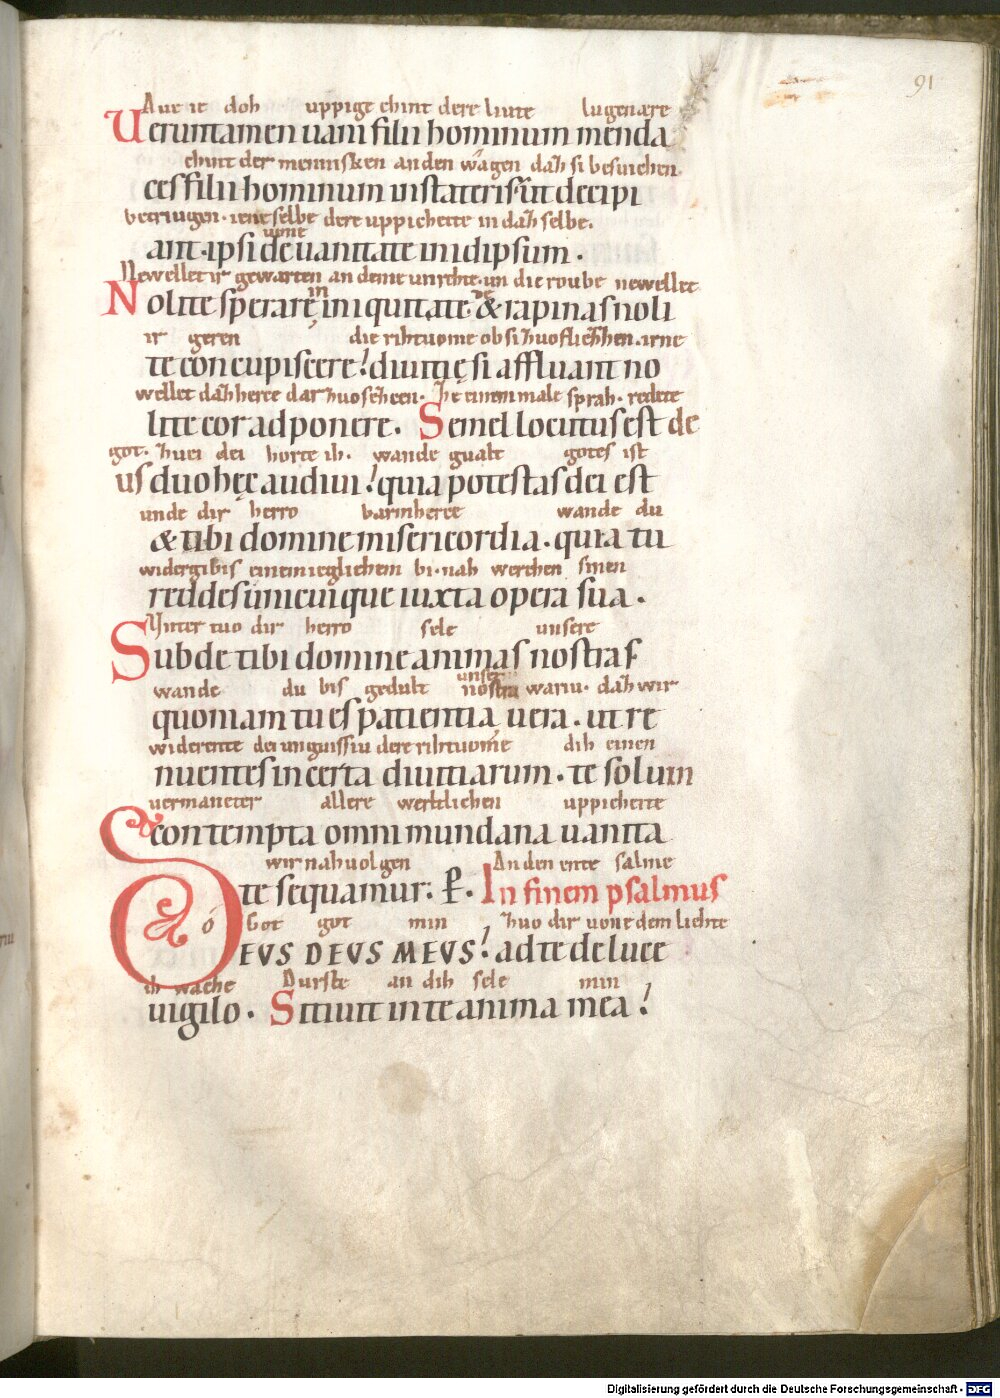 91
Aue ie doh uppige chint dere liute lugenære
Ueruntamen uani filii hominum menda
chint der mennisken an den wâgen dah si besuichen.
ces filii hominum in stateris. ut decipi
betriugen. iene selbe dere uppichette in dah selbe.
uone
ant. ipsi de uanitate in idipsum.
Newellet ir gewarten an deme unrehte. un die roube newellet
in de
Nolite sperare iniquitate & rapinas noli
ir geren die rihtuome ob si huo fliehhen. irne
te concupiscere! diuitię si affluant no
wellet dah herce dar huo seceen. Ze einem male sprah. redete
lite cor adponere. Semel locutus est de
got. huei dei horte ih. wande gualt gotes ist
us duo hęc audiui! quia potestas dei est
unde dir herro barmherce wande du
& tibi domine misericordia. quia tu
widergibis einemieglichem bi. nah werchen sinen
reddes unicuique iuxta opera sua.
Vnter tuo dir herro sele unsere
Subde tibi domine animas nostras
unser
wande du bis gedult nostra wariu. dah wir
quoniam tu es patientia uera. ut re
widerente dei unguissiu dere rihtuome dih einen
nuentes incerta diuitiarum. te solum
uermaneter allere werltlichen uppichette
& contempta omni mundana uanita
wir nah uolgen An den ente salme
te sequamur. P. In finem psalmus
ó Got got min huo dir uone dem liehte
DEUS DEUS MEUS! ad te de luce
ih wache Durste an dih sele min
uigilo. Sitiuit in te anima mea!
Digitalisierung gefördert durch die Deutsche Forschungsgemeinschaft - DFG